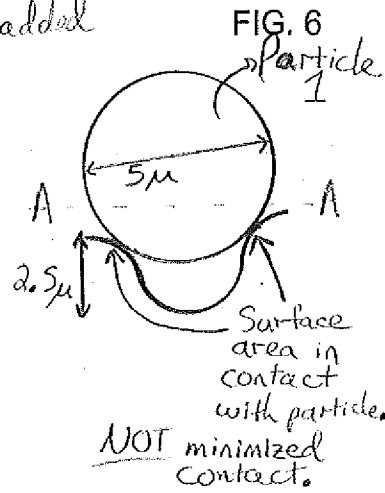 added
FIG. 6
Particle
1
5μ
A
A
2.5μ
Surface
area in
contact
with particle.
NOT minimized
contact.